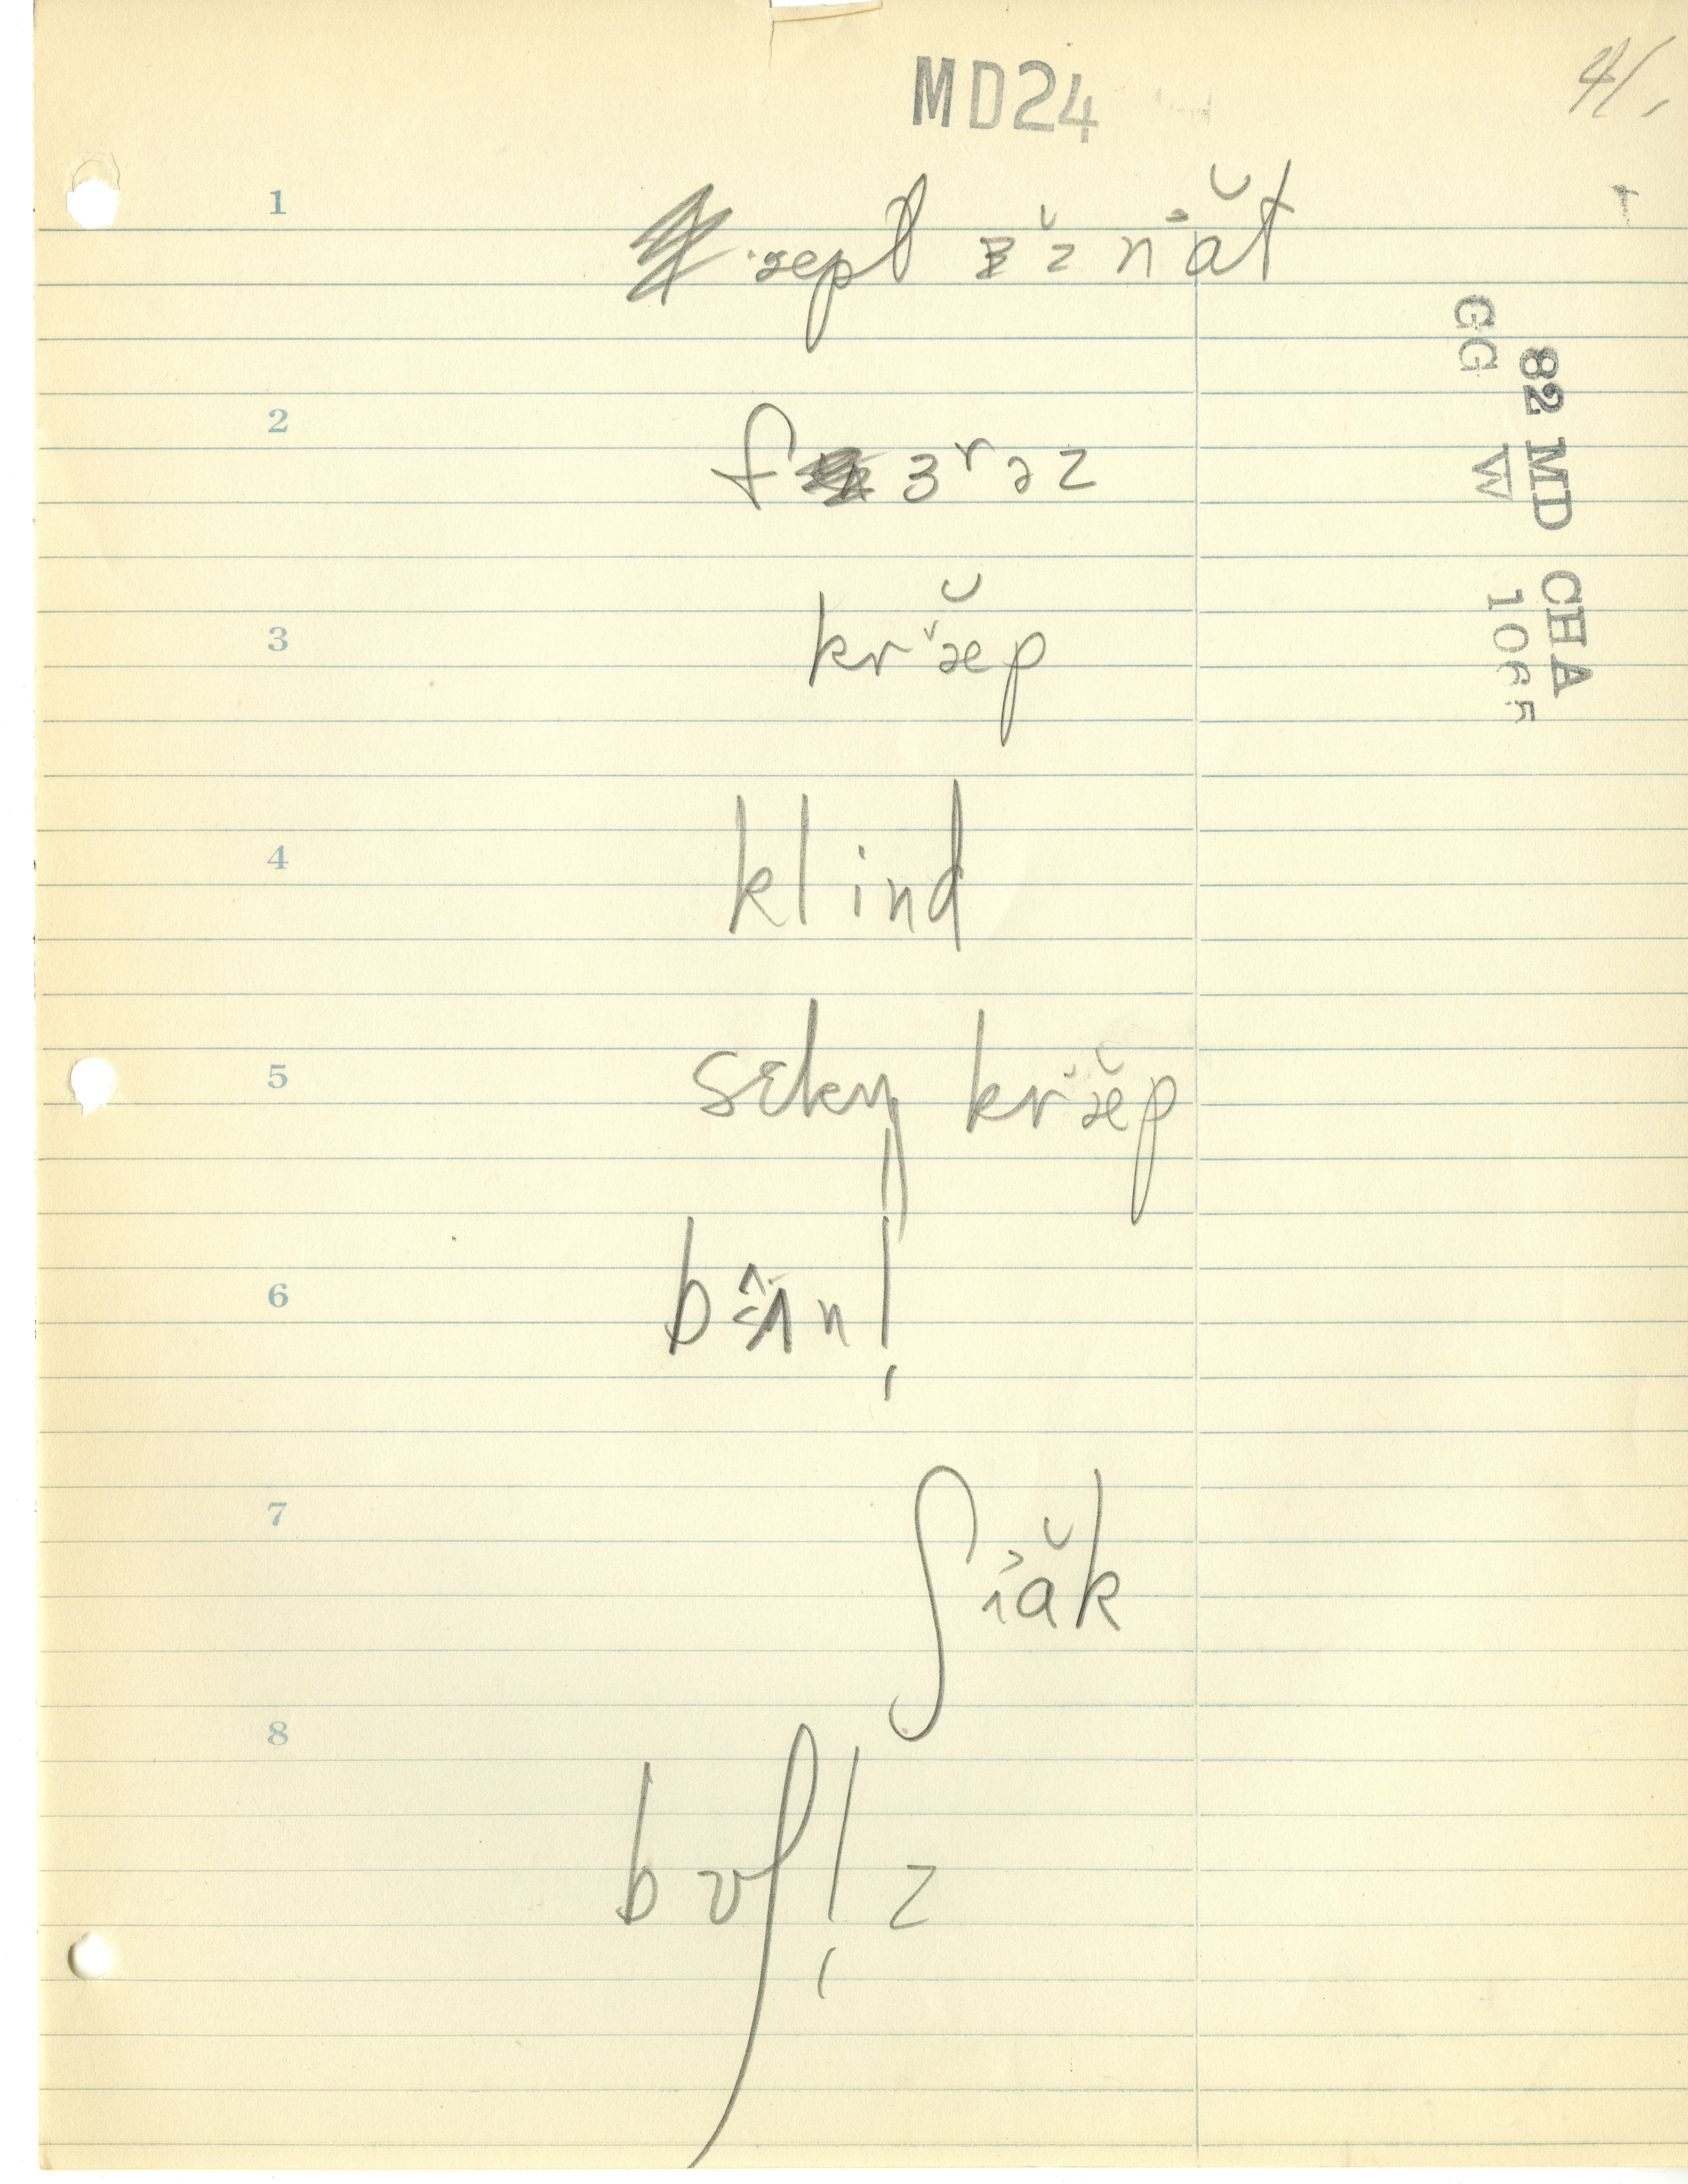 MD24
41.
1 æpl ɪ̆z nɑ̆t
82 MD CHA
GG W 1065
2 fɜrəz
3 kræ̆p
4 klind
5 sɛkn̩ kræ̆p
6 bʌnl̩
7 ʃɑ̆k
8 bʊʃl̩z